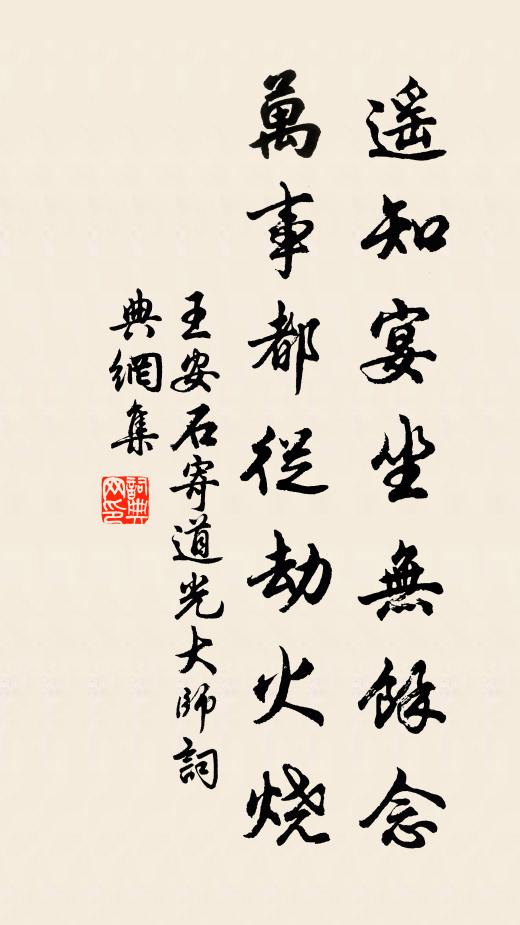 遥知宴坐無餘念
萬事都從劫火燒
王安石寄道光大師詞
典網集
詞典网印